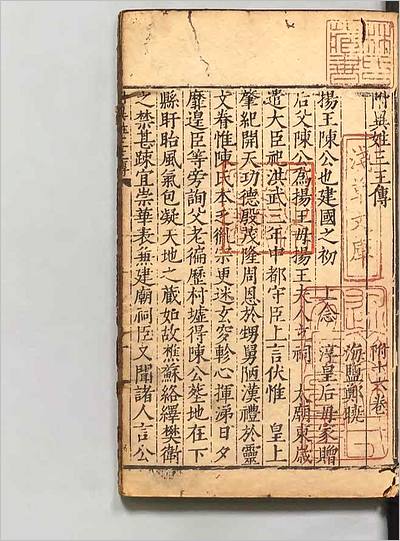 附異姓三王傳
附十六卷
海鹽鄭曉
揚王陳公也建國之初 上念 淳皇后母家贈
后父陳公為揚王母揚王夫人立祠 太廟東歲
遣大臣祀洪武三年中都守臣上言伏惟 皇上
肇紀開天功德殷茂隆周恩於甥舅陋漢禮於靈
文眷惟陳氏本支衍宗更迷玄穸軫心揮涕日夕
靡遑臣等旁詢父老徧歷村墟得陳公塋地在下
縣盱眙風氣包凝天地之藏如故樵蘇絡繹樊衛
之禁甚踈宜崇華表兼建廟祠臣又聞諸人言公